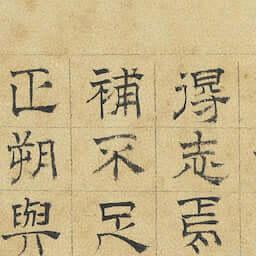 得志焉
補不足
正朔與